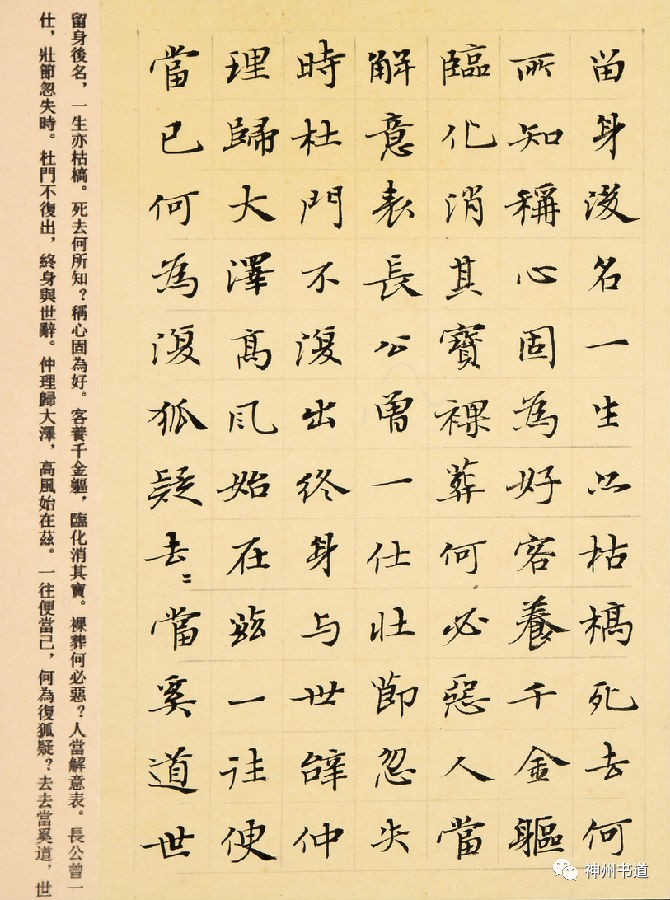 留身後名一生亦枯槁死去何
所知稱心固為好客養千金軀
臨化消其寶裸葬何必惡人當
解意表長公曾一仕壯節忽失
時杜門不復出終身与世辭仲
理歸大澤高風始在茲一往便
當已何為復狐疑去〻當奚道世
留身後名，一生亦枯槁。死去何所知？稱心固為好。客養千金軀，臨化消其寶。裸葬何必惡？人當解意表。長公曾一
仕，壯節忽失時。杜門不復出，終身與世辭。仲理歸大澤，高風始在茲。一往便當已，何為復狐疑？去去當奚道，世
神州书道